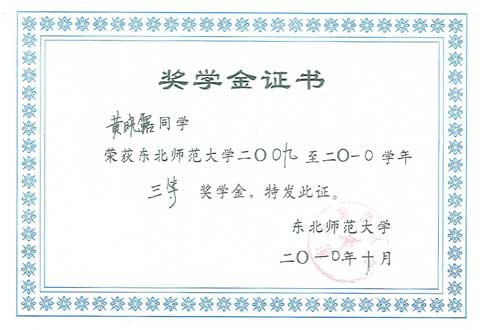 奖学金证书
黄晓露同学
荣获东北师范大学二〇〇九至二〇一〇学年
三等 奖学金，特发此证。
东北师范大学
二〇一〇年十月